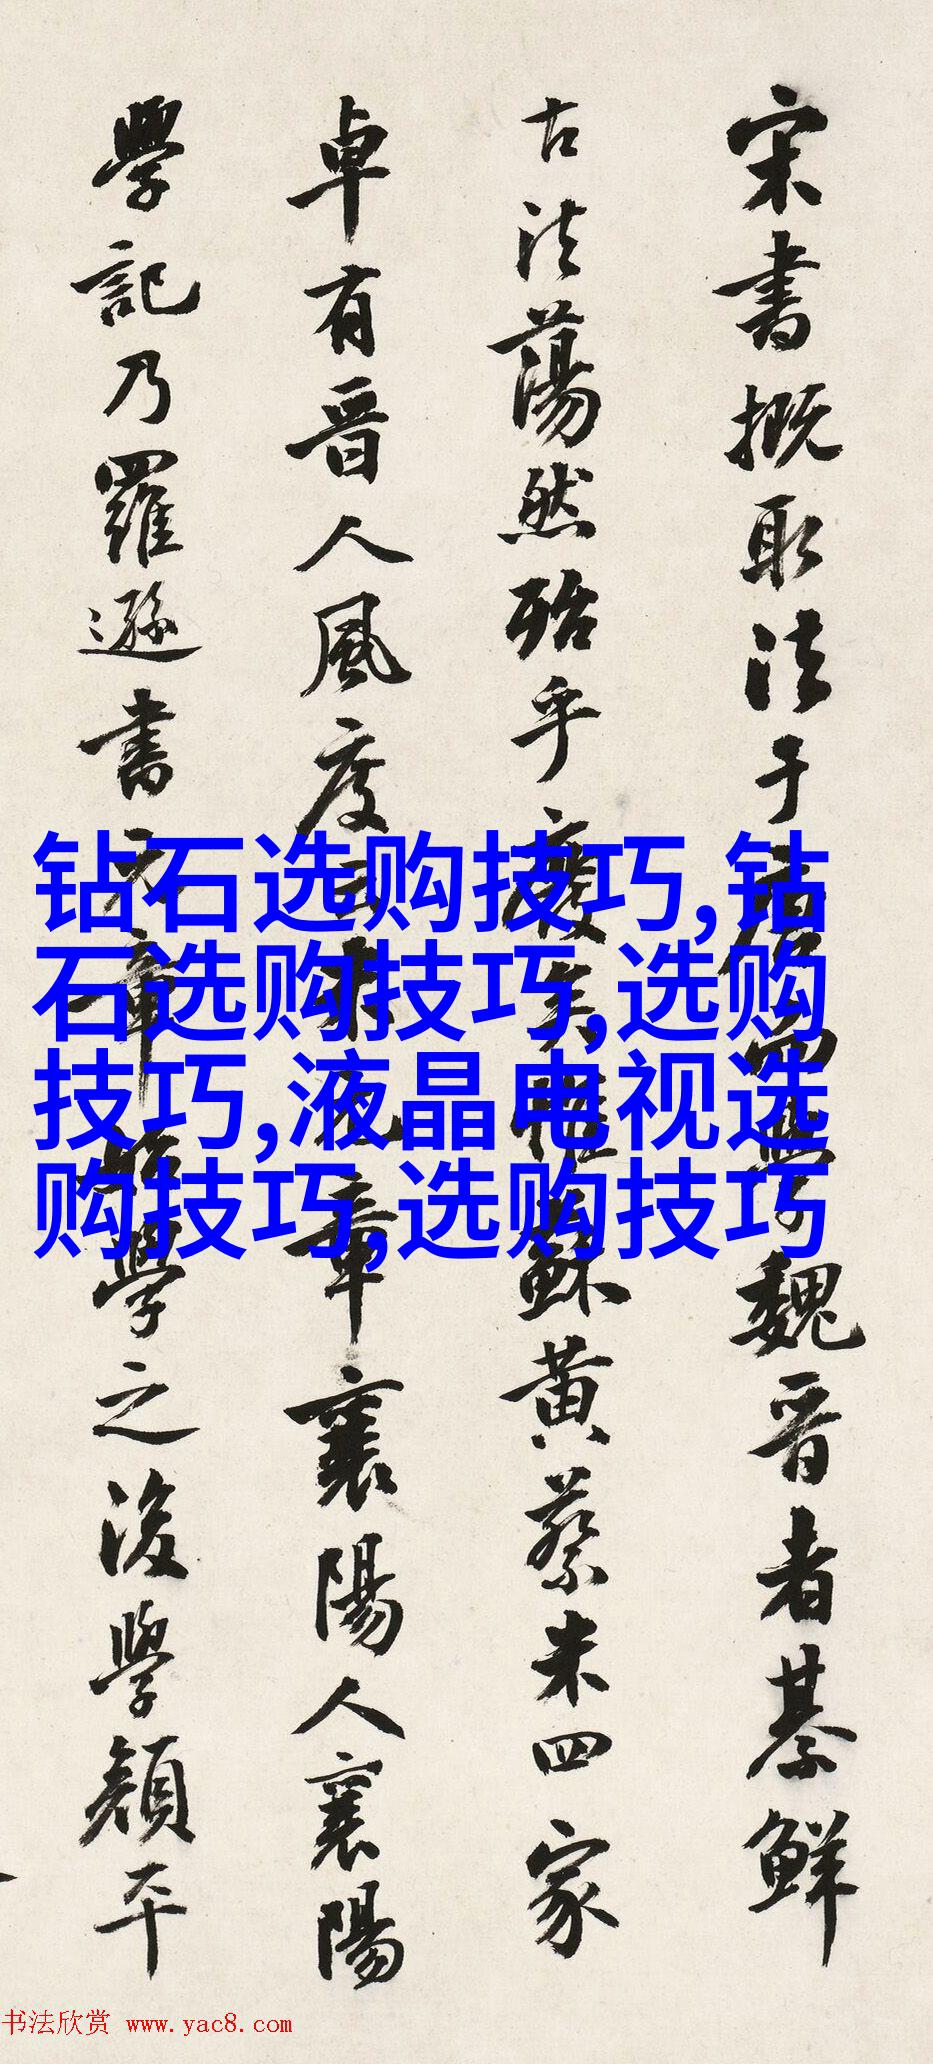 宋書概取法于唐四學魏晉者綦鮮
古法蕩然殆乎廢矣惟蘇黃蔡米四家
卓有晉人風度元章襄陽人襄陽
學記乃羅遜書元章始學之後學顏平
钻石选购技巧,钻
石选购技巧,选购
技巧,液晶电视选
购技巧,选购技巧
书法欣赏 www.yac8.com